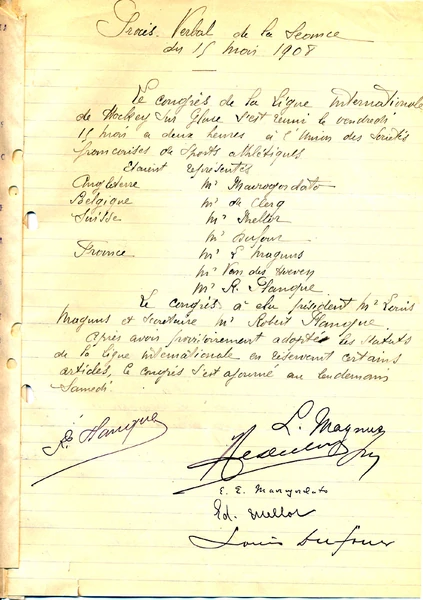 Procès Verbal de la Seance
du 15 mai 1908
Le congrès de la Ligue Internationale
de Hockey sur Glace s'est réuni le vendredi
15 mai a deux heures à l'Union des Sociétés
françaises de Sports athlétiques
Etaient représentés
Angleterre Mr Mavrogordato
Belgique Mr de Clerq
Suisse Mr Mellor
Mr Dufour
France Mr L Magnus
Mr Van der Hoeven
Mr R. Planque
Le congrès à elu président Mr Louis
Magnus et Secrétaire Mr Robert Planque
Après avoir provisoirement adopté les statuts
de la Ligue internationale en réservent certains
articles, le congrès s'est ajourné au lendemain
Samedi.
R. Planque
L. Magnus
E. E. Mavrogordato
Ed. Mellor
Louis Dufour